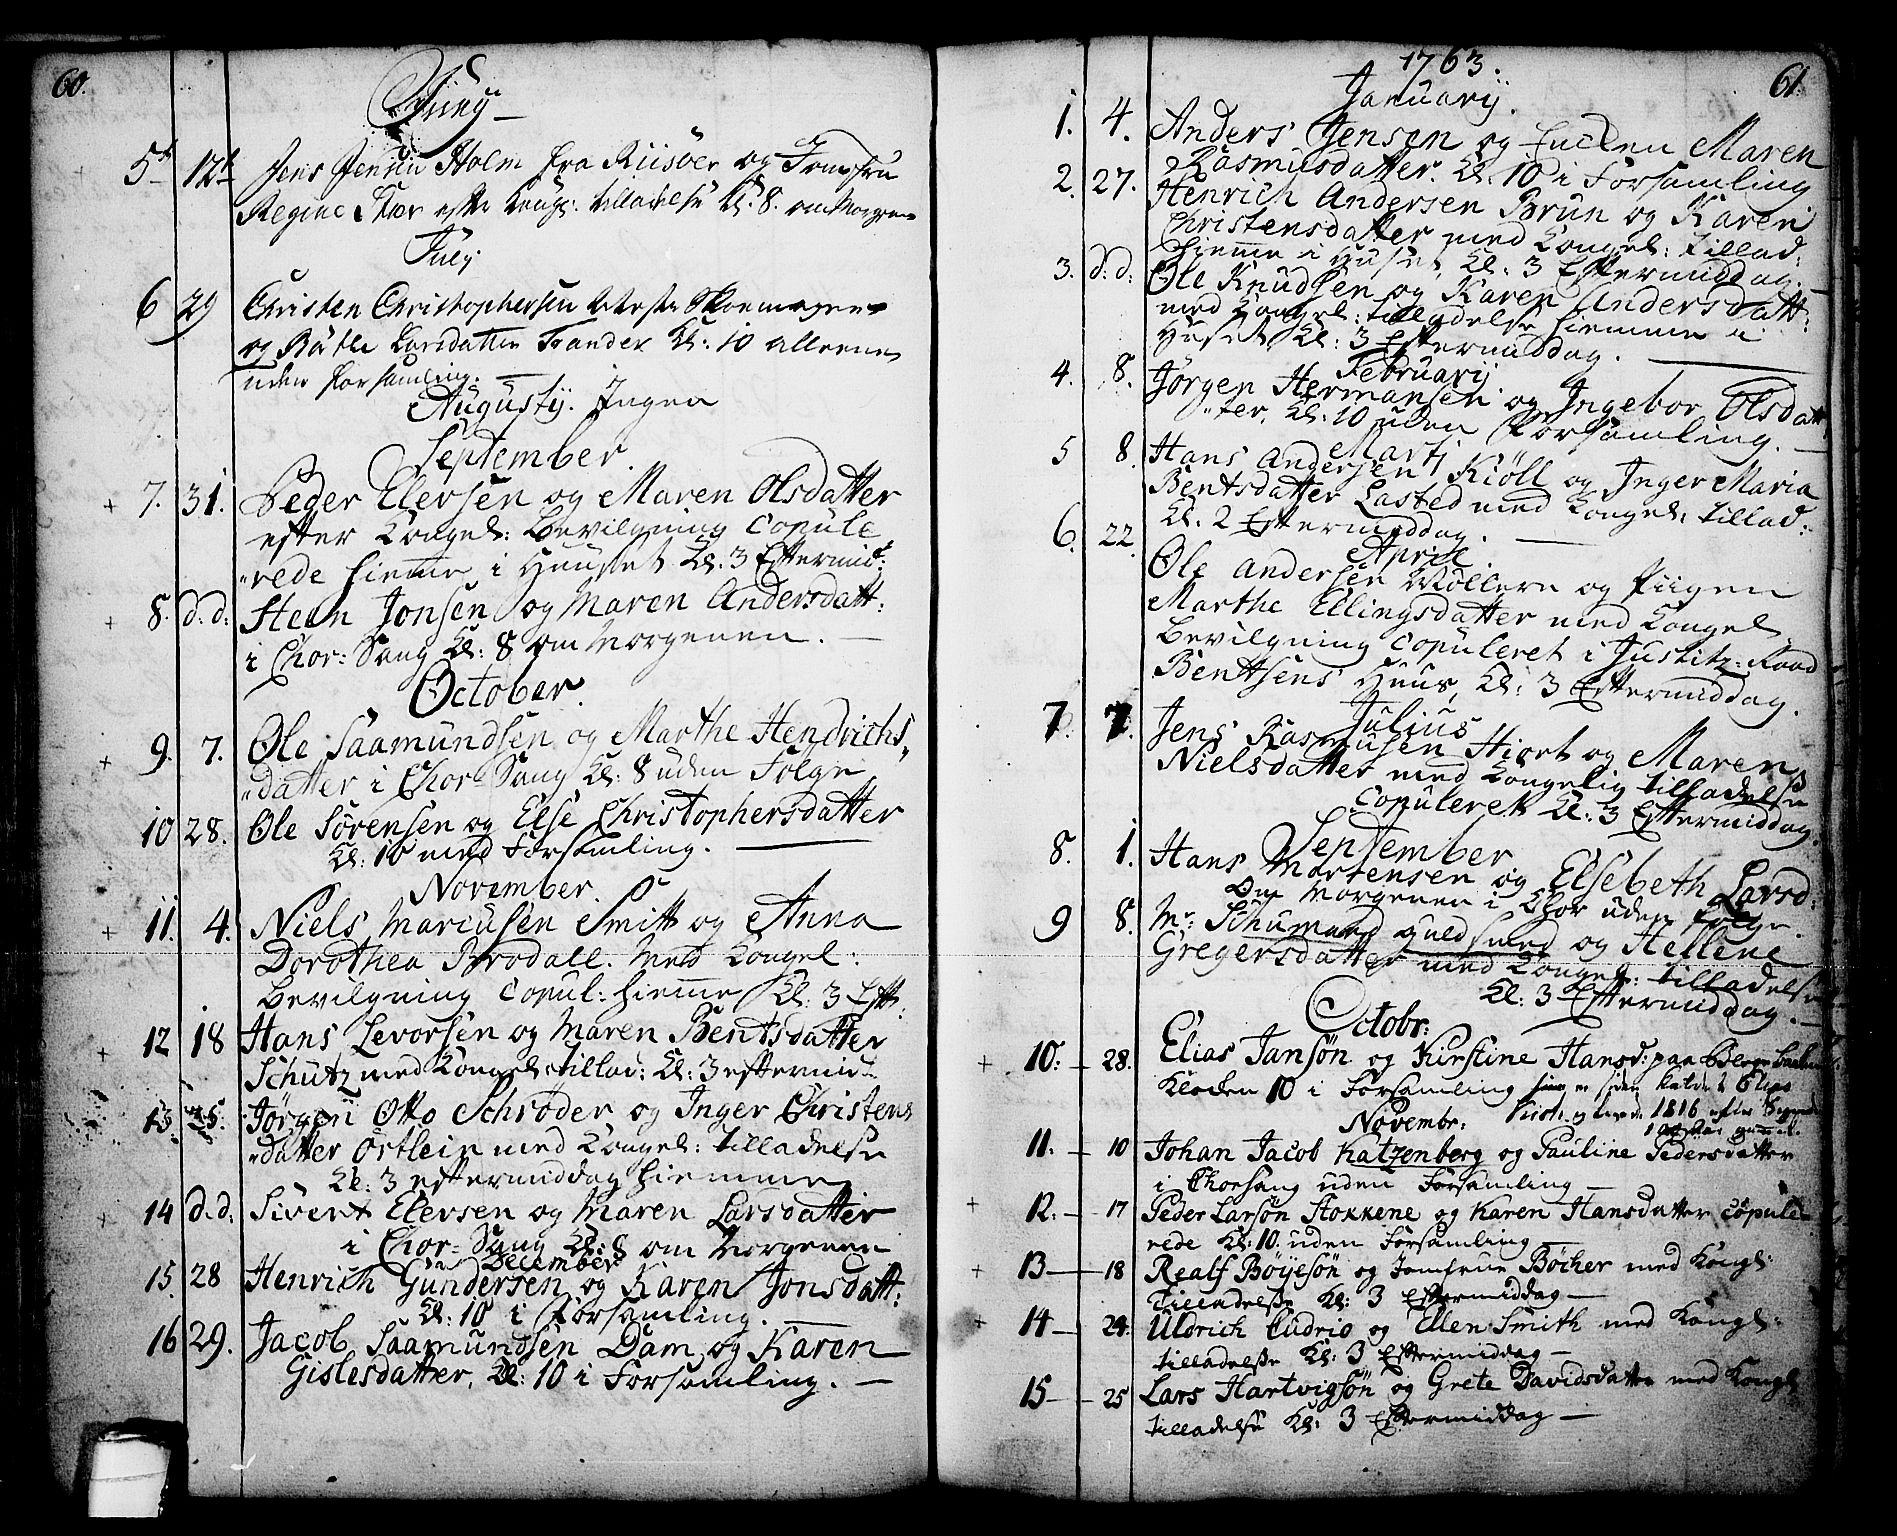 60.
Juny
5te 12te Jens Jensen Holm fra Riisöer og Jomfru
Regine Stær efter Kongl: tilladelse Kl. 8. om Morgenen
July
6 29 Christen Christophersen Skoemager
og Kätle Larsdatter Kl: 10 alleene
uden forsamling.
Augustij. Ingen
September.
7. 31. Peder Elersen og Maren Olsdatter
efter Kongel: Bevilgning Copule
"rede hiemme i Huuset Kl. 3 Eftermid:
8. d.d. Sten Jonsen og Maren Andersdatt:
i Chor: Sang Kl: 8 om Morgenen. —
October.
9. 7. Ole Saamundsen og Marthe Hendrichs,,
"datter i Chor= Sang Kl: 8 uden Følge
10 28. Ole Sörensen og Else Christophersdatter
Kl: 10 med Forsamling. —
November.
11. 4. Niels Mariusen Smitt og Anna
Dorothea Brodall. Med Kongel:
Bevilgning Copul: hiemme Kl: 3 Eft:
12 18 Hans Levorsen og Maren Bentsdatter
Schutz med Kongel: tillad: Kl: 3 eftermid:
13. 25. Jörgen Otto Schröder og Inger Christens
"datter Ortlein med Kongel: tilladelse
Kl: 3 eftermiddag hiemme
14 d.d. Sivert Elersen og Maren Larsdatter
i Chor= Sang Kl: 8 om Morgenen
December
15. 28 Henrich Gundersen og Karen Jonsdatt:
Kl: 10 i Forsamling. —
16 29. Jacob Saamundsen Dam og Karen
Gislesdatter, Kl: 10 i Forsamling. —
61.
1763.
Januarij.
1. 4. Anders Jensen og Encken Maren
Rasmusdatter. Kl: 10 i Forsamling
2. 27. Henrich Andersen Brun og Karen
Christensdatter med Kongel: Tillad:
hiemme i Huset, Kl: 3 Eftermiddag.
3. d:d: Ole Knudsen og Karen Andersdatt:
med Kongel: tilladelse hiemme i
Huset Kl: 3 Eftermiddag. —
Februarij.
4. 8. Jörgen Hermansen og Ingebor Olsdatt
"ter, Kl: 10 uden Forsamling. —
Martj
5 8. Hans Andersen Kiöll og Inger Maria
Bentsdatter Lasted med Kongel: tillad:
Kl: 2 Eftermiddag. —
April.
6. 22. Ole Andersen Möllern og Piigen
Marthe Ellingsdatter med Kongel.
Bevilgning Copuleret i Justitz: Raad
Bentsens Huus, Kl: 3 Eftermiddag.
Julius
7. 7. Jens Rasmusen Hiort og Maren
Nielsdatter med Kongelig tilladelse
Copuleret Kl: 3 Eftermiddag.
September
8. 1. Hans Mortensen og Elsebeth Larsd:
Om Morgenen i Chor uden følge.
9 8. Mr. Schumand guldsmed og Hellene
Gregersdatter med Kongel: tilladelse
Kl: 3 Eftermiddag. —
Octobr:
10: — 28. Elias Jansön og Kirstine Hansd: paa
Klocken 10 i Forsamling siden kaldet Elias
Novembr: 1816 efter
11. — 10 Johan Jacob Katzenberg og Pauline Pedersdatter
i Chorsang uden Forsamling —
12. — 17 Peder Larsön Stokkene og Karen Hansdatter Copule
rede Kl: 10 uden Forsamling —
13 — 18 Realf Böyesön og Jomfrue Böcher med Kongl:
Tilladelse Kl: 3 Eftermiddag —
14 — 24. Uldrich Cudrio og Ellen Smith med Kongl:
tilladelse Kl: 3 Eftermiddag —
15 — 25 Lars Hartvigsön og Grete Davidsdatter med Kongl:
tilladelse Kl: 3 Eftermiddag —